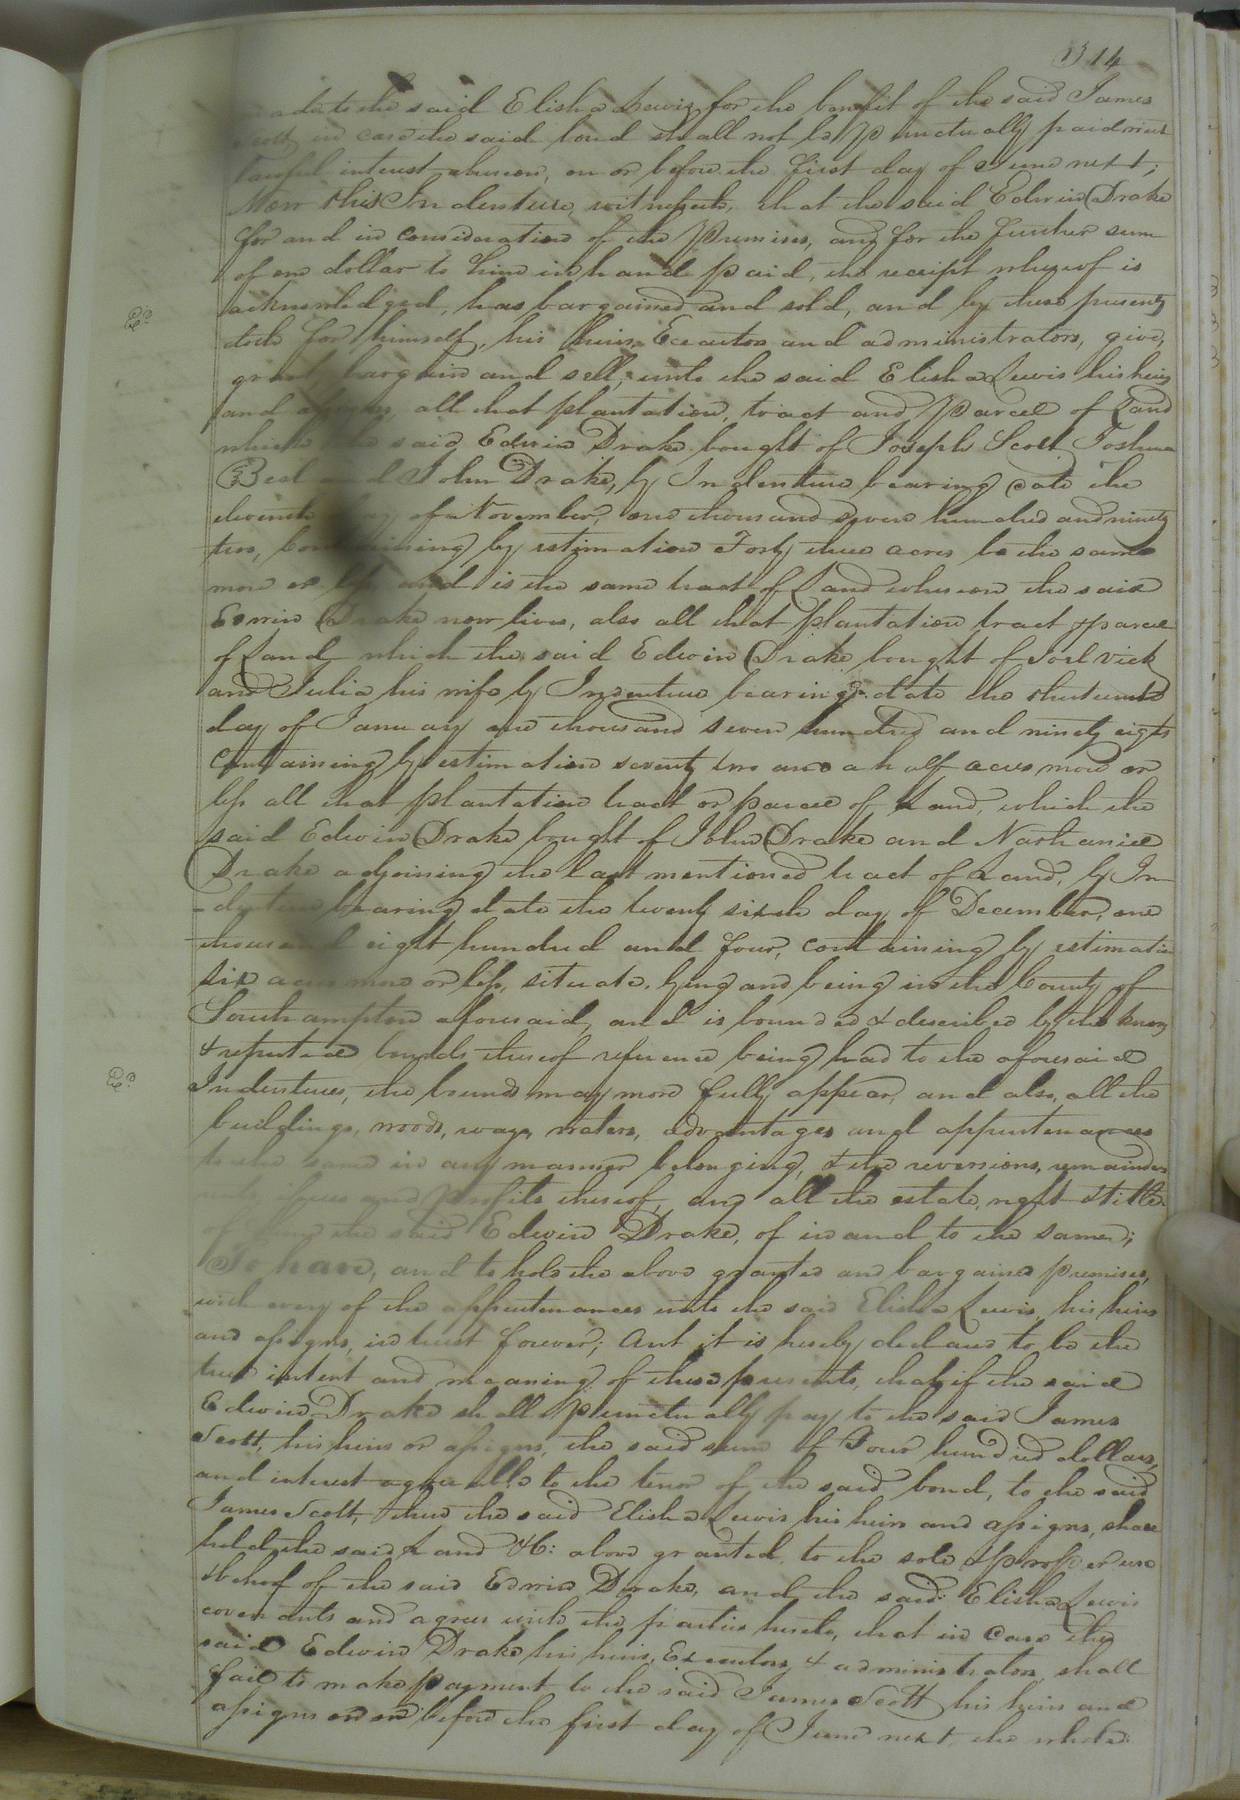 314
made to the said Elisha Lewis for the benefit of the said James
Scott in case the said bond shall not be punctually paid with
lawful interest thereon, on or before the first day of June next;
Now this Indenture witnesseth, that the said Edwin Drake
for and in consideration of the Premises, and for the further sum
of one dollar to him in hand paid, the receipt whereof is
acknowledged, has bargained and sold, and by these presents
doth for himself, his heirs, Executors and administrators, give,
grant, bargain and sell, unto the said Elisha Lewis his heirs
and assigns, all that plantation, tract and Parcel of Land
which the said Edwin Drake bought of Joseph Scott, Joshua
Beal and John Drake, by Indenture bearing date the
eleventh day of November, one thousand seven hundred and ninety
two, containing by estimation Forty three acres be the same
more or less and is the same tract of Land whereon the said
Edwin Drake now lives, also all that plantation tract & parcel
of Land which the said Edwin Drake bought of Joel Vick
and Julia his wife by Indenture bearing date the thirteenth
day of January one thousand seven hundred and ninety eight
Containing by estimation seventy two and a half acres more or
less all that plantation tract or parcel of Land, which the
said Edwin Drake bought of John Drake and Nathaniel
Drake adjoining the last mentioned tract of Land, by In
-denture bearing date the twenty sixth day of December, one
thousand eight hundred and four, containing by estimation
six acres more or less, situate, lying and being in the County of
Southampton aforesaid, and is bounded & described by the known
& reputed bounds thereof reference being had to the aforesaid
Indentures, the bounds may more fully appear, and also, all the
buildings, woods, ways, waters, advantages and appurtenances
to the same in any manner belonging, & the reversions, remainders
rents, issues and profits thereof, and all the estate, right & title
of him the said Edwin Drake, of in and to the same;
To have, and to hold the above granted and bargained premises,
with every of the appurtenances unto the said Elisha Lewis, his heirs
and assigns, in trust forever; And it is hereby declared to be the
true intent and meaning of these presents, that if the said
Edwin Drake shall punctually pay to the said James
Scott, his heirs or assigns, the said sum of Four hundred dollars,
and interest agreeable to the tenor of the said bond, to the said
James Scott, then the said Elisha Lewis his heirs and assigns, shall
hold the said Land &C: above granted, to the sole & proper use
& behoof of the said Edwin Drake, and the said Elisha Lewis
covenants and agrees with the parties hereto, that in Case the
said Edwin Drake his heirs, Executors & administrators, shall
fail to make payment to the said James Scott his heirs and
assigns on or before the first day of June next, the whole